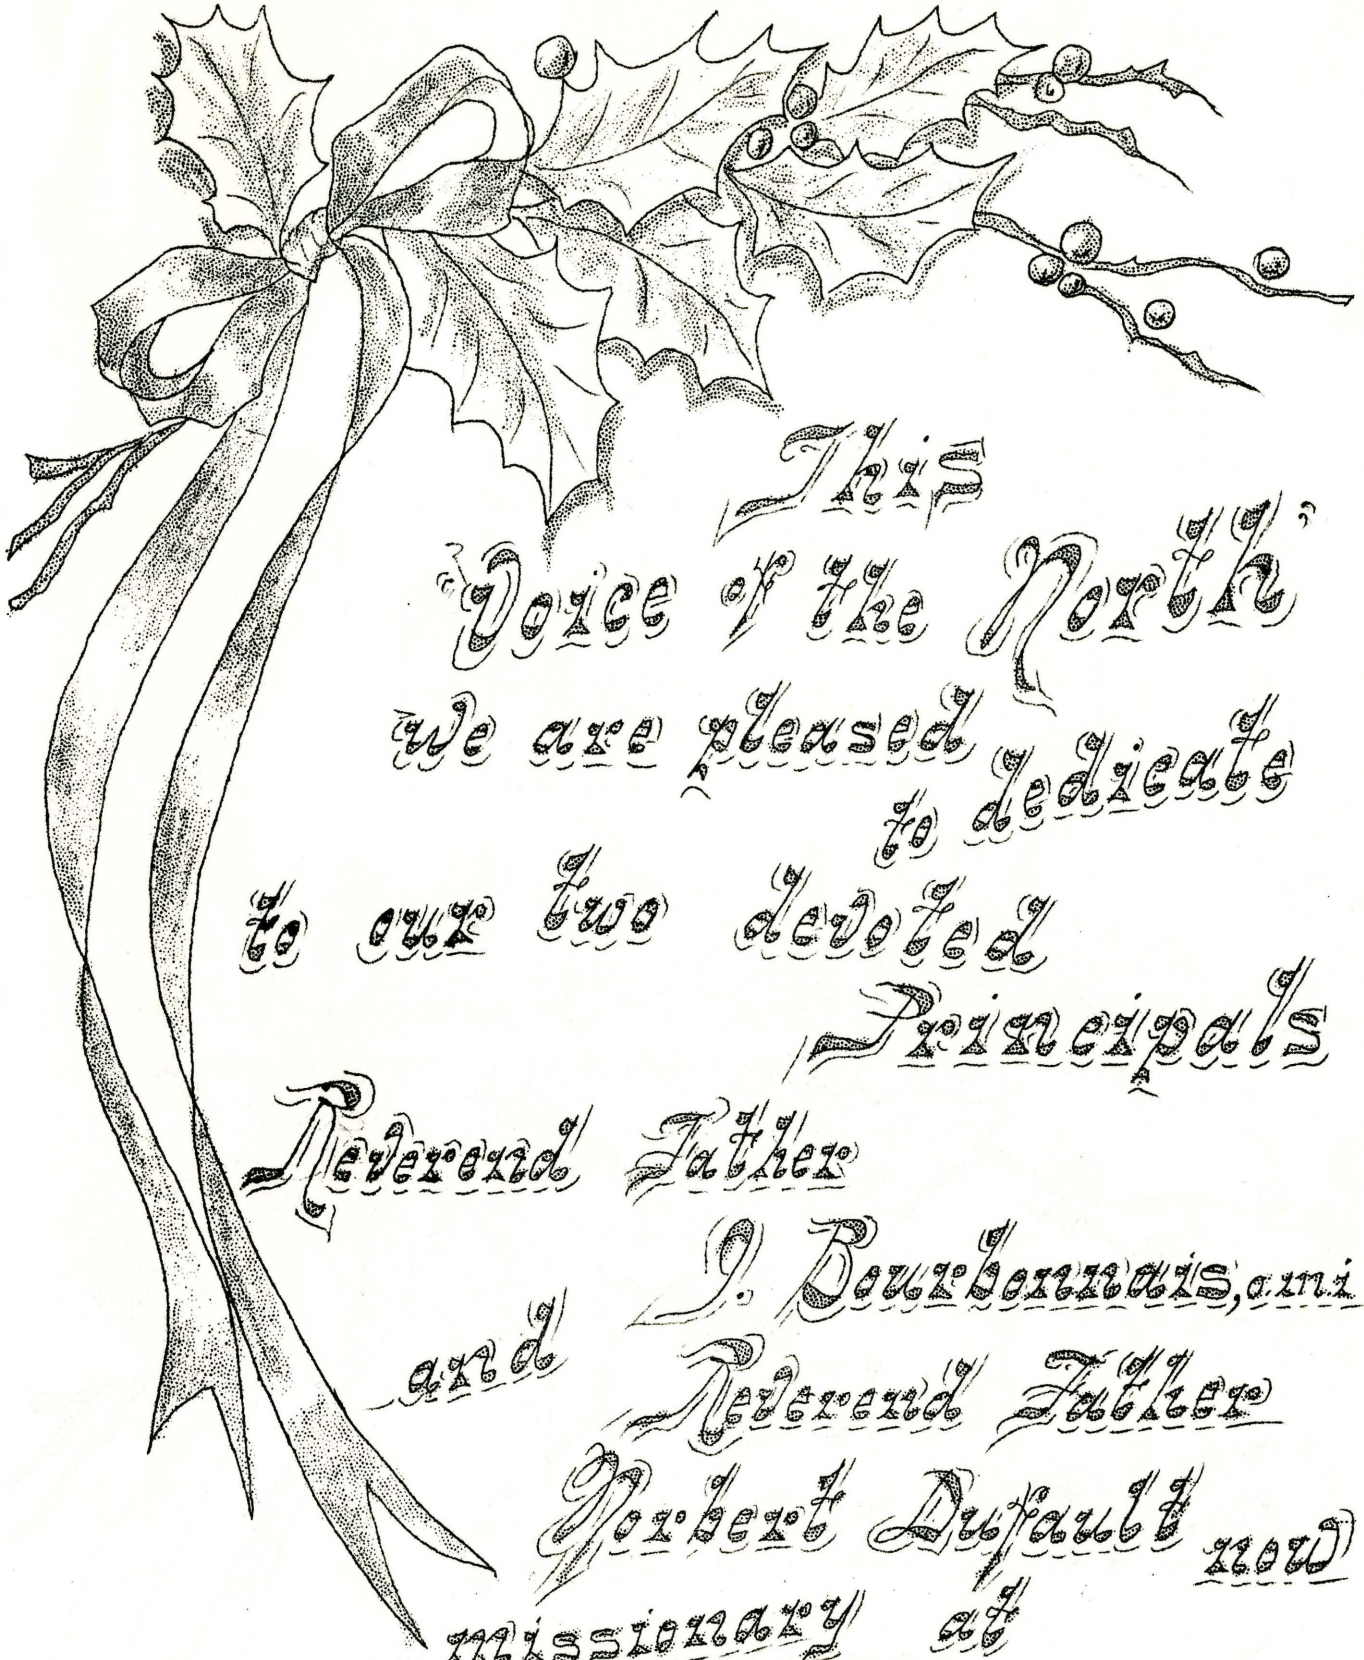 This
"Voice of the North"
we are pleased
to dedicate
to our two devoted
Principals
Reverend Father
J. Bourbonnais, o.m.i
and
Reverend Father
Norbert Dufault now
missionary at